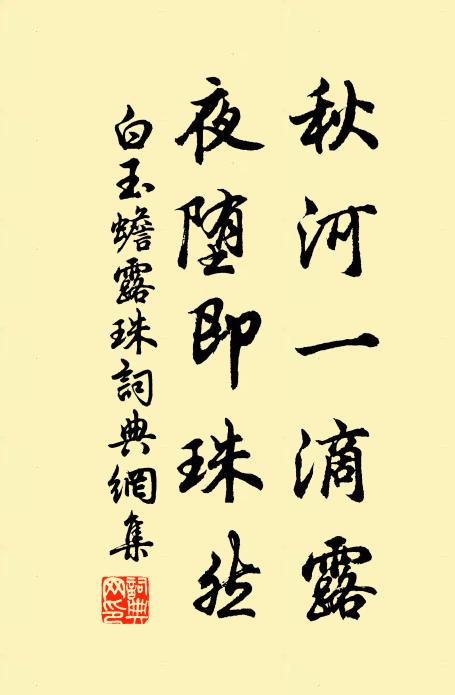 秋河一滴露
夜堕即珠然
白玉蟾露珠詞典網集
詞典网印